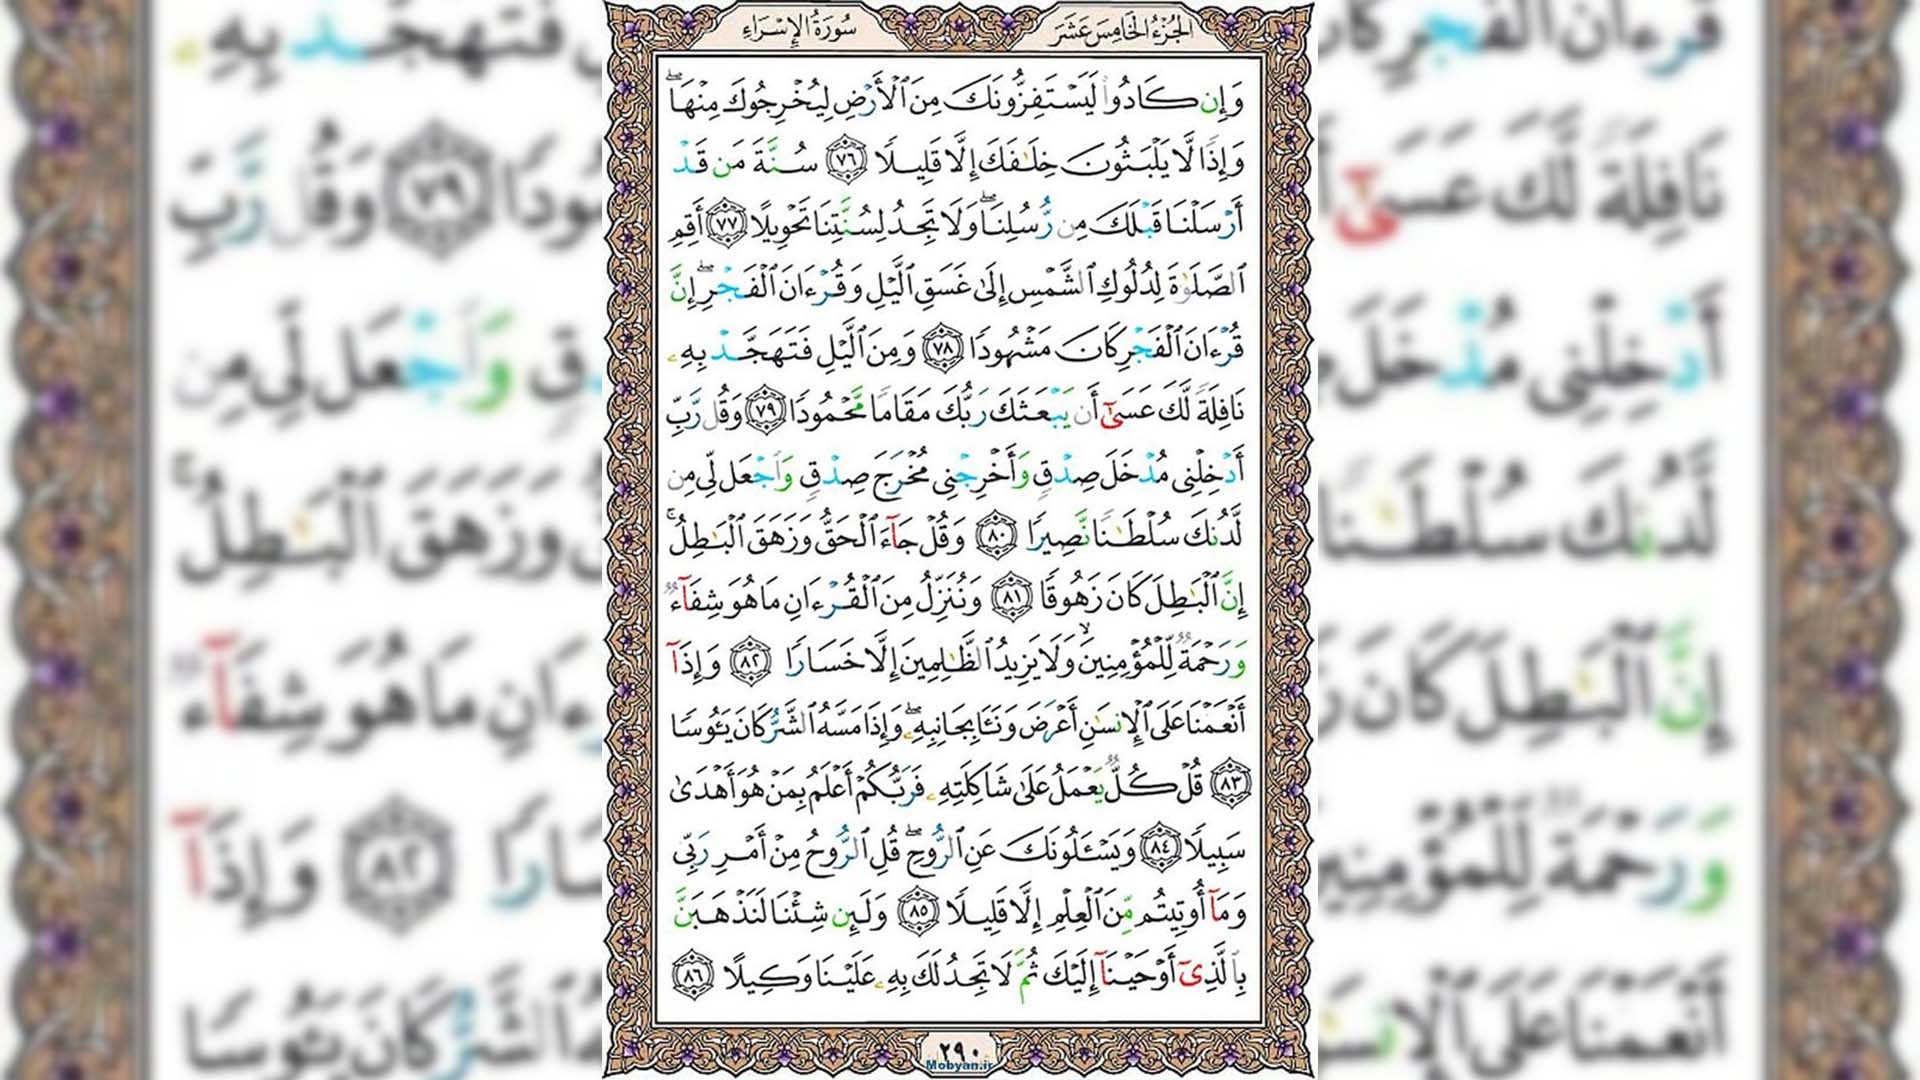 الجُزْءُ الخَامِسَ عَشَرَ
سُورَةُ الإِسْرَاءِ
وَإِن كَادُوا۟ لَيَسْتَفِزُّونَكَ مِنَ ٱلْأَرْضِ لِيُخْرِجُوكَ مِنْهَا ۖ
وَإِذًا لَّا يَلْبَثُونَ خِلَـٰفَكَ إِلَّا قَلِيلًا ٧٦ سُنَّةَ مَن قَدْ
أَرْسَلْنَا قَبْلَكَ مِن رُّسُلِنَا ۖ وَلَا تَجِدُ لِسُنَّتِنَا تَحْوِيلًا ٧٧ أَقِمِ
ٱلصَّلَوٰةَ لِدُلُوكِ ٱلشَّمْسِ إِلَىٰ غَسَقِ ٱلَّيْلِ وَقُرْءَانَ ٱلْفَجْرِ ۖ إِنَّ
قُرْءَانَ ٱلْفَجْرِ كَانَ مَشْهُودًا ٧٨ وَمِنَ ٱلَّيْلِ فَتَهَجَّدْ بِهِۦ
نَافِلَةً لَّكَ عَسَىٰٓ أَن يَبْعَثَكَ رَبُّكَ مَقَامًا مَّحْمُودًا ٧٩ وَقُل رَّبِّ
أَدْخِلْنِى مُدْخَلَ صِدْقٍ وَأَخْرِجْنِى مُخْرَجَ صِدْقٍ وَٱجْعَل لِّى مِن
لَّدُنكَ سُلْطَـٰنًا نَّصِيرًا ٨٠ وَقُلْ جَآءَ ٱلْحَقُّ وَزَهَقَ ٱلْبَـٰطِلُ ۚ
إِنَّ ٱلْبَـٰطِلَ كَانَ زَهُوقًا ٨١ وَنُنَزِّلُ مِنَ ٱلْقُرْءَانِ مَا هُوَ شِفَآءٌ
وَرَحْمَةٌ لِّلْمُؤْمِنِينَ ۙ وَلَا يَزِيدُ ٱلظَّـٰلِمِينَ إِلَّا خَسَارًا ٨٢ وَإِذَآ
أَنْعَمْنَا عَلَى ٱلْإِنسَـٰنِ أَعْرَضَ وَنَـَٔا بِجَانِبِهِۦ ۖ وَإِذَا مَسَّهُ ٱلشَّرُّ كَانَ يَـُٔوسًا
٨٣ قُلْ كُلٌّ يَعْمَلُ عَلَىٰ شَاكِلَتِهِۦ فَرَبُّكُمْ أَعْلَمُ بِمَنْ هُوَ أَهْدَىٰ
سَبِيلًا ٨٤ وَيَسْـَٔلُونَكَ عَنِ ٱلرُّوحِ ۖ قُلِ ٱلرُّوحُ مِنْ أَمْرِ رَبِّى
وَمَآ أُوتِيتُم مِّنَ ٱلْعِلْمِ إِلَّا قَلِيلًا ٨٥ وَلَئِن شِئْنَا لَنَذْهَبَنَّ
بِٱلَّذِىٓ أَوْحَيْنَآ إِلَيْكَ ثُمَّ لَا تَجِدُ لَكَ بِهِۦ عَلَيْنَا وَكِيلًا ٨٦
٢٩٠
Mobyan.ir